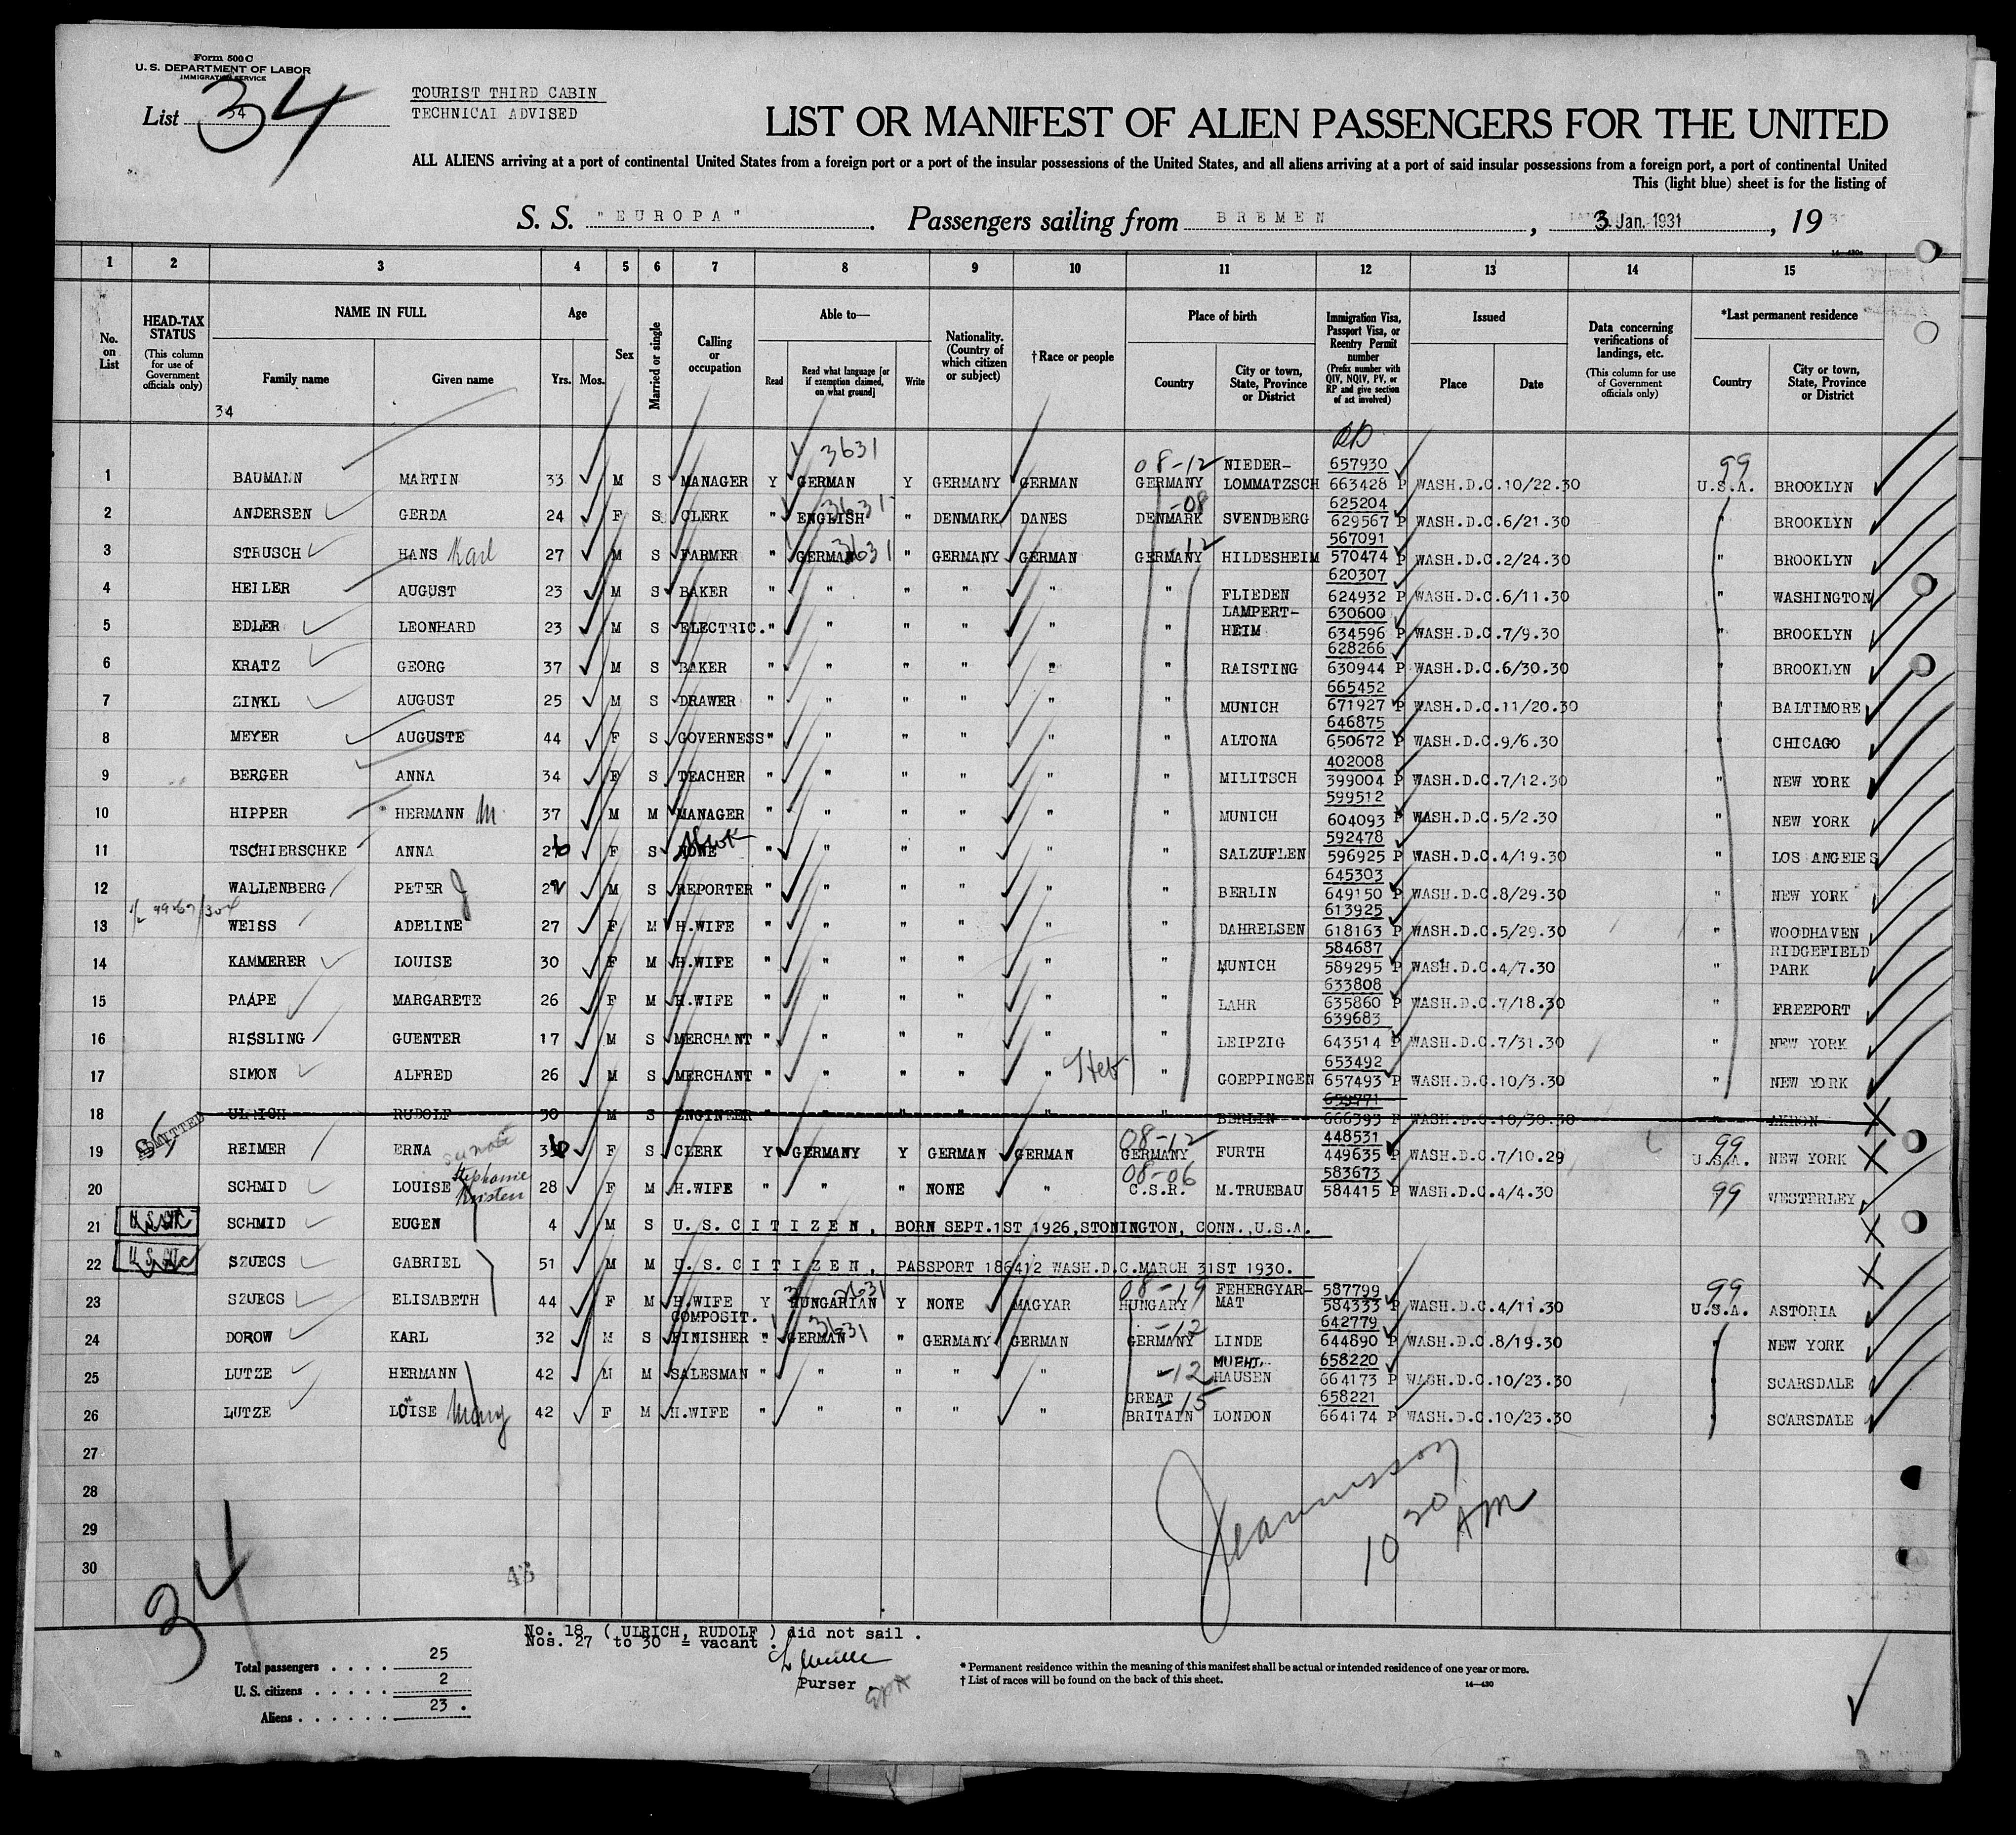 Form 500 C
U. S. DEPARTMENT OF LABOR
IMMIGRATION SERVICE
List 34
34
TOURIST THIRD CABIN
TECHNICAL ADVISED
LIST OR MANIFEST OF ALIEN PASSENGERS FOR THE UNITED
ALL ALIENS arriving at a port of continental United States from a foreign port or a port of the insular possessions of the United States, and all aliens arriving at a port of said insular possessions from a foreign port, a port of continental United
This (light blue) sheet is for the listing of
S. S. "EUROPA". Passengers sailing from BREMEN, 3. Jan. 1931, 19
1 2 3 4 5 6 7 8 9 10 11 12 13 14 15
No. on List
HEAD-TAX STATUS (This column for use of Government officials only)
NAME IN FULL Family name Given name
Age Yrs. Mos.
Sex
Married or single
Calling or occupation
Able to— Read Read what language [or if exemption claimed, on what ground] Write
Nationality. (Country of which citizen or subject)
†Race or people
Place of birth Country City or town, State, Province or District
Immigration Visa, Passport Visa, or Reentry Permit number (Prefix number with QIV, NQIV, PV, or RP and give section of act involved)
Issued Place Date
Data concerning verifications of landings, etc. (This column for use of Government officials only)
*Last permanent residence Country City or town, State, Province or District
34
3631
1 BAUMANN MARTIN 33 M S MANAGER Y GERMAN Y GERMANY GERMAN 08-12 GERMANY NIEDER-LOMMATZSCH 657930 663428 P WASH.D.C.10/22.30 99 U.S.A. BROOKLYN
2 ANDERSEN GERDA 24 F S CLERK " ENGLISH 3631 " DENMARK DANES -08 DENMARK SVENDBERG 625204 629567 P WASH.D.C.6/21.30 " BROOKLYN
3 STRUSCH HANS Karl 27 M S FARMER " GERMAN 3631 " GERMANY GERMAN -12 GERMANY HILDESHEIM 567091 570474 P WASH.D.C.2/24.30 " BROOKLYN
4 HEILER AUGUST 23 M S BAKER " " " " " " FLIEDEN 620307 624932 P WASH.D.C.6/11.30 " WASHINGTON
5 EDLER LEONHARD 23 M S ELECTRIC. " " " " " " LAMPERT-HEIM 630600 634596 P WASH.D.C.7/9.30 " BROOKLYN
6 KRATZ GEORG 37 M S BAKER " " " " " " RAISTING 628266 630944 P WASH.D.C.6/30.30 " BROOKLYN
7 ZINKL AUGUST 25 M S DRAWER " " " " " " MUNICH 665452 671927 P WASH.D.C.11/20.30 " BALTIMORE
8 MEYER AUGUSTE 44 F S GOVERNESS " " " " " " ALTONA 646875 650672 P WASH.D.C.9/6.30 " CHICAGO
9 BERGER ANNA 34 F S TEACHER " " " " " " MILITSCH 402008 399004 P WASH.D.C.7/12.30 " NEW YORK
10 HIPPER HERMANN M 37 M M MANAGER " " " " " " MUNICH 599512 604093 P WASH.D.C.5/2.30 " NEW YORK
11 TSCHIERSCHKE ANNA 26 F S NONE " " " " " " SALZUFLEN 592478 596925 P WASH.D.C.4/19.30 " LOS ANGELES
12 WALLENBERG PETER J 29 M S REPORTER " " " " " " BERLIN 645303 649150 P WASH.D.C.8/29.30 " NEW YORK
13 WEISS ADELINE 27 F M H.WIFE " " " " " " DAHRELSEN 613925 618163 P WASH.D.C.5/29.30 " WOODHAVEN
14 KAMMERER LOUISE 30 F M H.WIFE " " " " " " MUNICH 584687 589295 P WASH.D.C.4/7.30 " RIDGEFIELD PARK
15 PAAPE MARGARETE 26 F M H.WIFE " " " " " " LAHR 633808 635860 P WASH.D.C.7/18.30 " FREEPORT
16 RISSLING GUENTER 17 M S MERCHANT " " " " " " LEIPZIG 639683 643514 P WASH.D.C.7/31.30 " NEW YORK
17 SIMON ALFRED 26 M S MERCHANT " " " " " Heb " GOEPPINGEN 653492 657493 P WASH.D.C.10/3.30 " NEW YORK
18 ULRICH RUDOLF 30 M S ENGINEER " " " " " " BERLIN 659771 666393 P WASH.D.C.10/30.30 " AKRON
19 ADMITTED REIMER ERNA F S CLERK Y GERMANY Y GERMAN GERMAN 08-12 GERMANY FURTH 448531 449635 P WASH.D.C.7/10.29 99 U.S.A. NEW YORK
20 SCHMID LOUISE Stephanie Kirsten 28 F M H.WIFE " " " NONE " 08-06 C.S.R. M.TRUEBAU 583673 584415 P WASH.D.C.4/4.30 99 WESTERLEY
21 SCHMID EUGEN 4 M S U.S.CITIZEN, BORN SEPT.1ST 1926,STONINGTON, CONN.,U.S.A.
22 SZUECS GABRIEL 51 M M U.S.CITIZEN, PASSPORT 186412 WASH.D.C.MARCH 31ST 1930.
23 SZUECS ELISABETH 44 F M H.WIFE Y HUNGARIAN Y NONE MAGYAR 08-19 HUNGARY FEHERGYAR-MAT 587799 584333 P WASH.D.C.4/11.30 99 U.S.A. ASTORIA
24 DOROW KARL 32 M S COMPOSIT. FINISHER " GERMAN 3631 " GERMANY GERMAN -12 GERMANY LINDE 642779 644890 P WASH.D.C.8/19.30 " NEW YORK
25 LUTZE HERMANN 42 M M SALESMAN " " " " " -12 MUEHL-HAUSEN 658220 664173 P WASH.D.C.10/23.30 SCARSDALE
26 LUTZE LOISE Mary 42 F M H.WIFE " " " " " 15 GREAT BRITAIN LONDON 658221 664174 P WASH.D.C.10/23.30 " SCARSDALE
27
28
29
30
10 30 AM
34
No. 18 ( ULRICH, RUDOLF ) did not sail .
Nos. 27 to 30 = vacant .
Purser
Total passengers . . . . 25
U. S. citizens . . . . . 2
Aliens . . . . . . 23 .
* Permanent residence within the meaning of this manifest shall be actual or intended residence of one year or more.
† List of races will be found on the back of this sheet.
14—430